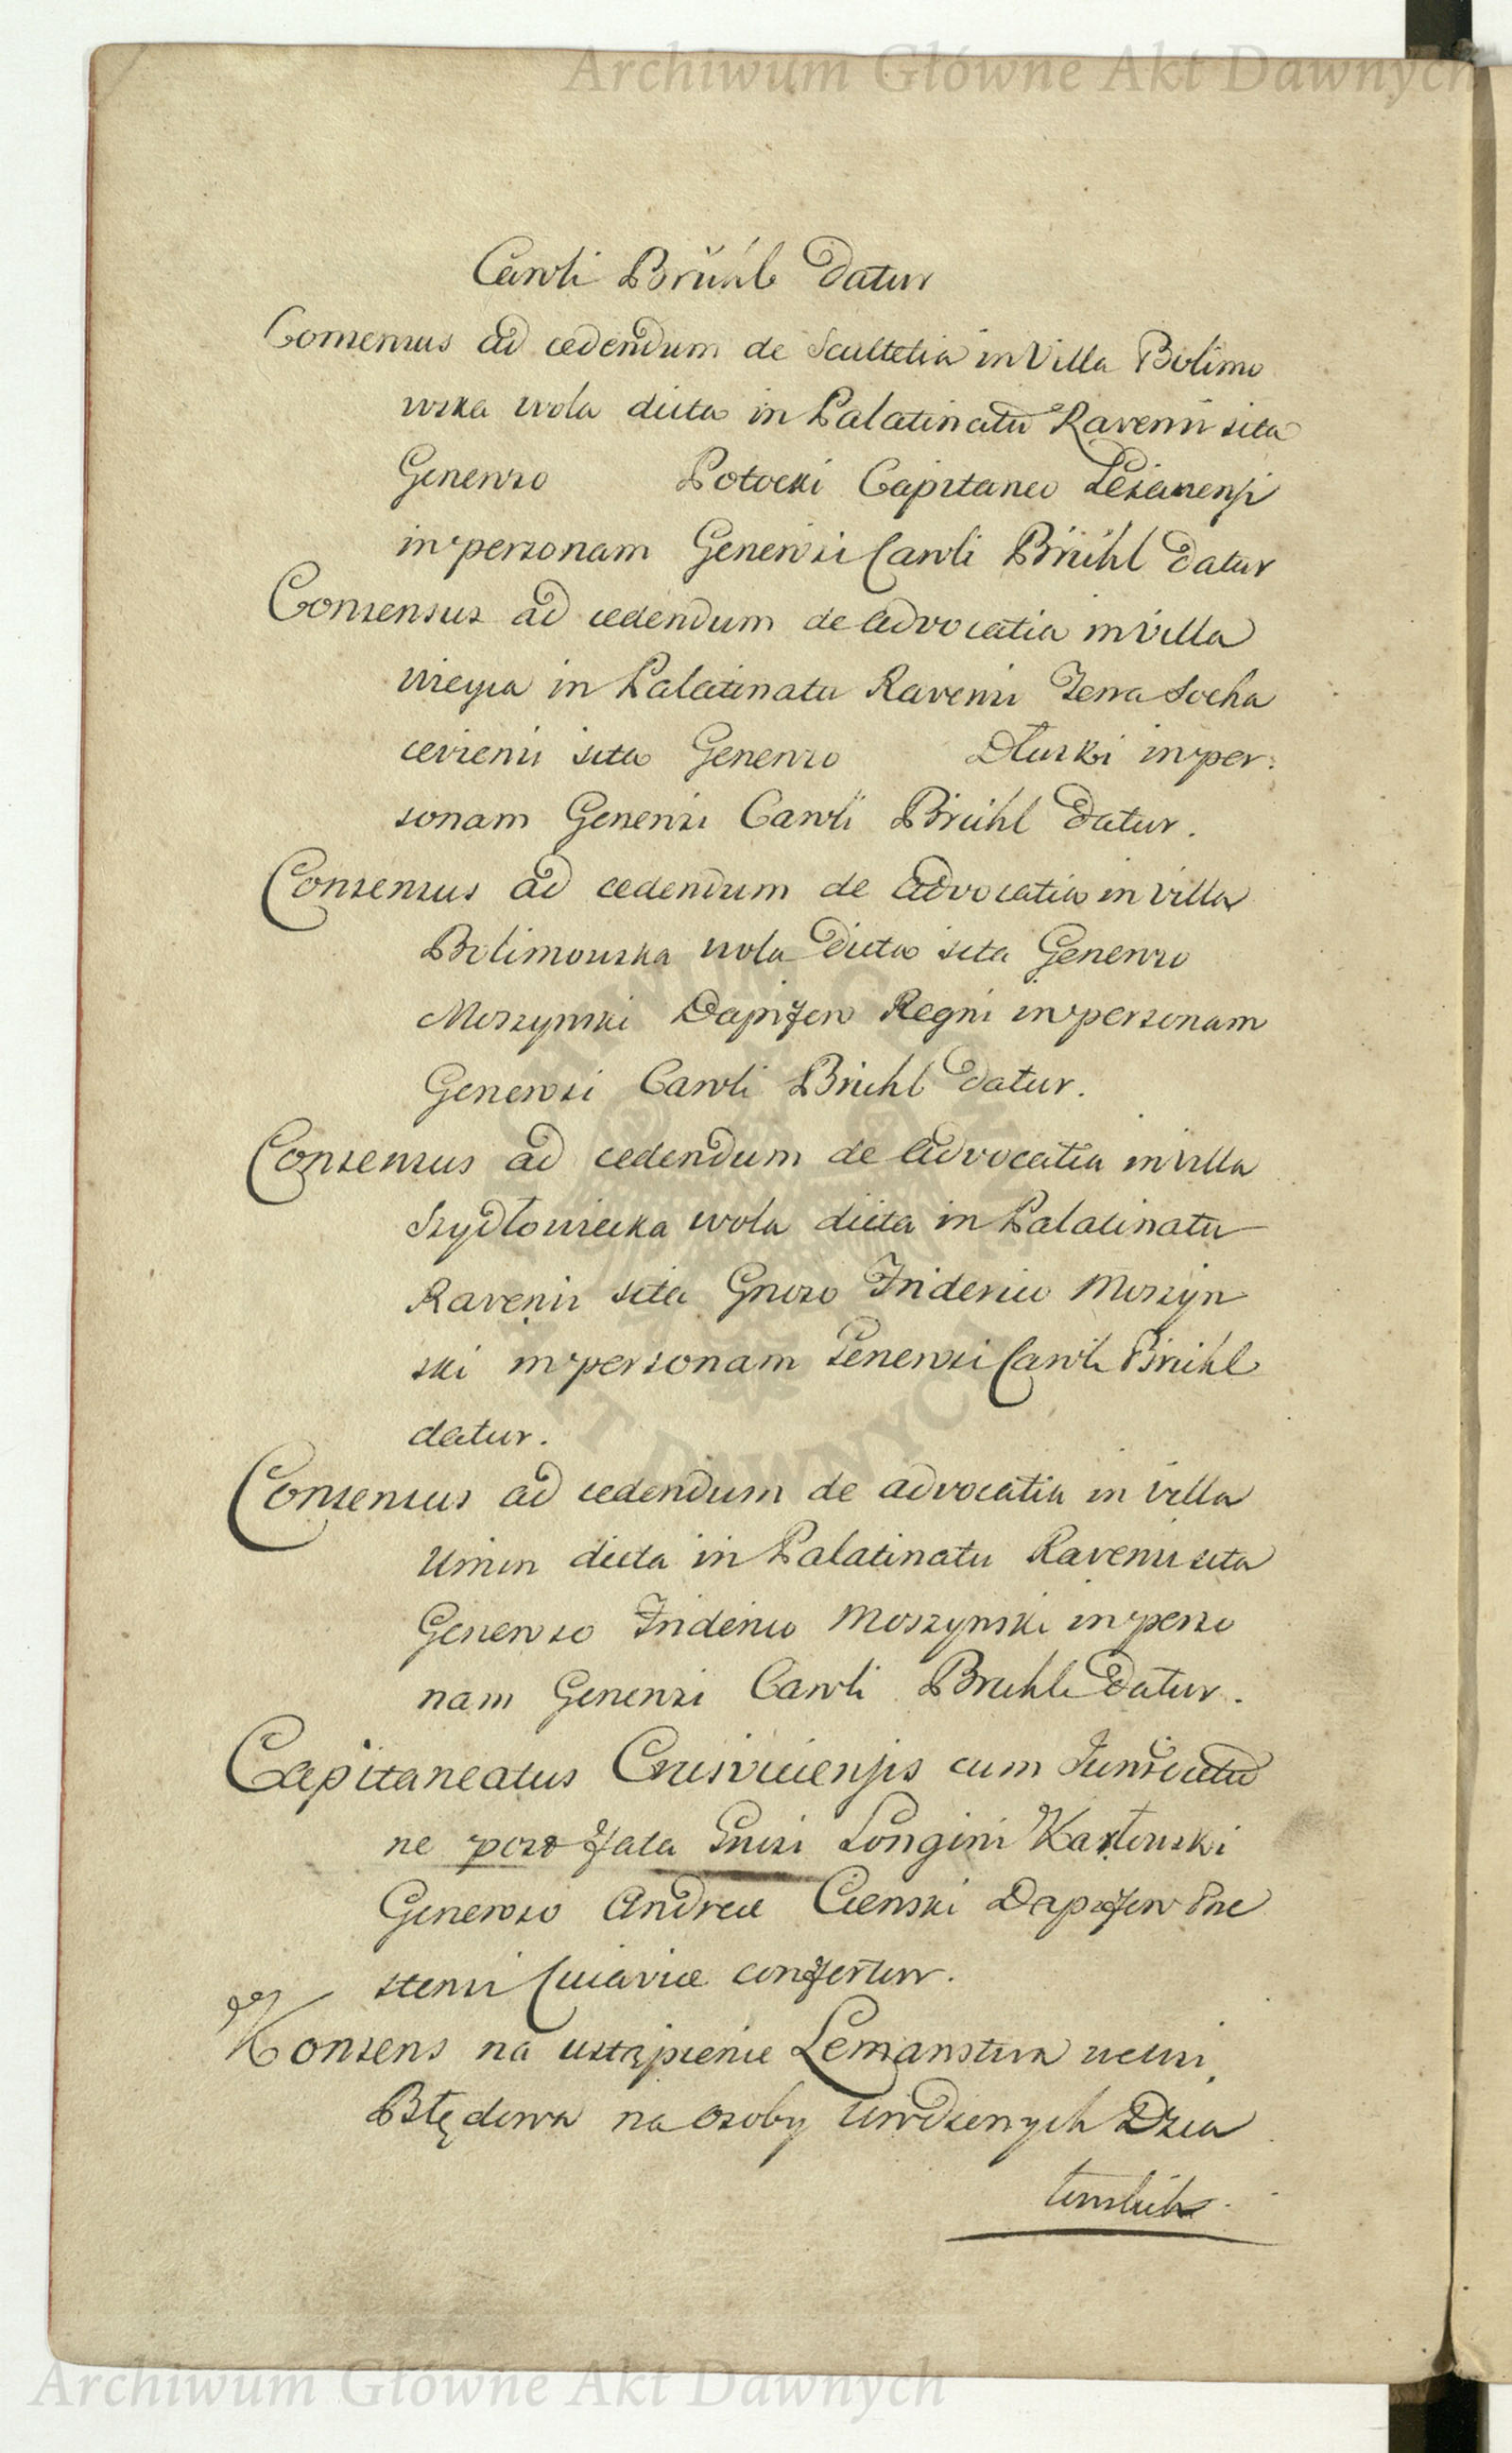 Archiwum Główne Akt Dawnych
Caroli Brühl datur
Consensus ad cedendum de Scultetia in Villa Bolimo
wska wola dicta in Palatinatu Ravensi sita
Generoso Potocki Capitaneo Leżanensi
in personam Generosi Caroli Brühl datur
Consensus ad cedendum de advocatia in villa
in Palatinatu Ravensi Terra Socha
ceviensi sita Generoso Dłuski in per:
sonam Generosi Caroli Brühl datur.
Consensus ad cedendum de advocatia in villa
Bolimowska wola dicta sita Generoso
Moszynski Dapifero Regni in personam
Generosi Caroli Brühl datur.
Consensus ad cedendum de advocatia in villa
Szydłowiecka wola dicta in Palatinatu
Ravensi sita Gnroso Friderico Moszyn
ski in personam Generosi Caroli Brühl
datur.
Consensus ad cedendum de advocatia in villa
dicta in Palatinatu Ravensi sita
Generoso Friderico Moszynski in perso
nam Generosi Caroli Bruhl datur.
Capitaneatus Crusviciensis cum Jurisdictio
ne post fata Gnrsi Longini Karłowski
Generoso Andreæ Cienski Dapifero Bre
stensi Cuiaviæ confertur.
Konsens na ustąpienie Lemanstwa we wsi
Błędowa na osoby Urodzonych Dzia
łenskich.
Archiwum Główne Akt Dawnych